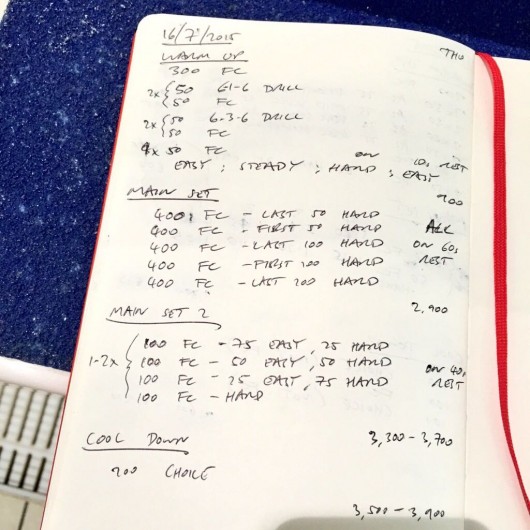 16/7/2015 THU
WARM UP
300 FC
2x { 50 6-1-6 DRILL
50 FC
2x { 50 6-3-6 DRILL
50 FC
4x 50 FC on 10s REST
EASY ; STEADY ; HARD ; EASY
900
MAIN SET
400 FC - LAST 50 HARD ALL
400 FC - FIRST 50 HARD on 60s
400 FC - LAST 100 HARD REST
400 FC - FIRST 100 HARD
400 FC - LAST 200 HARD
2,900
MAIN SET 2
1-2x { 100 FC - 75 EASY, 25 HARD
100 FC - 50 EASY, 50 HARD on 40s
100 FC - 25 EASY, 75 HARD REST
100 FC - HARD
3,300 - 3,700
COOL DOWN
200 CHOICE
3,500 - 3,900